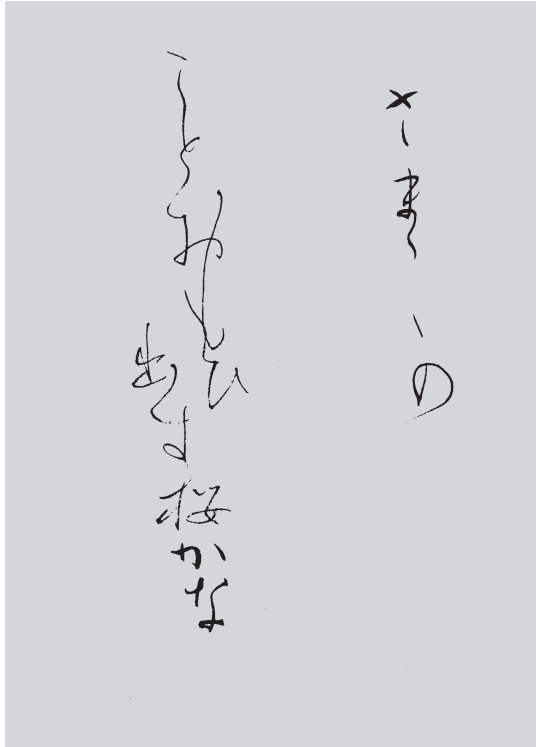 さまざまの
ことおもひ出す桜かな